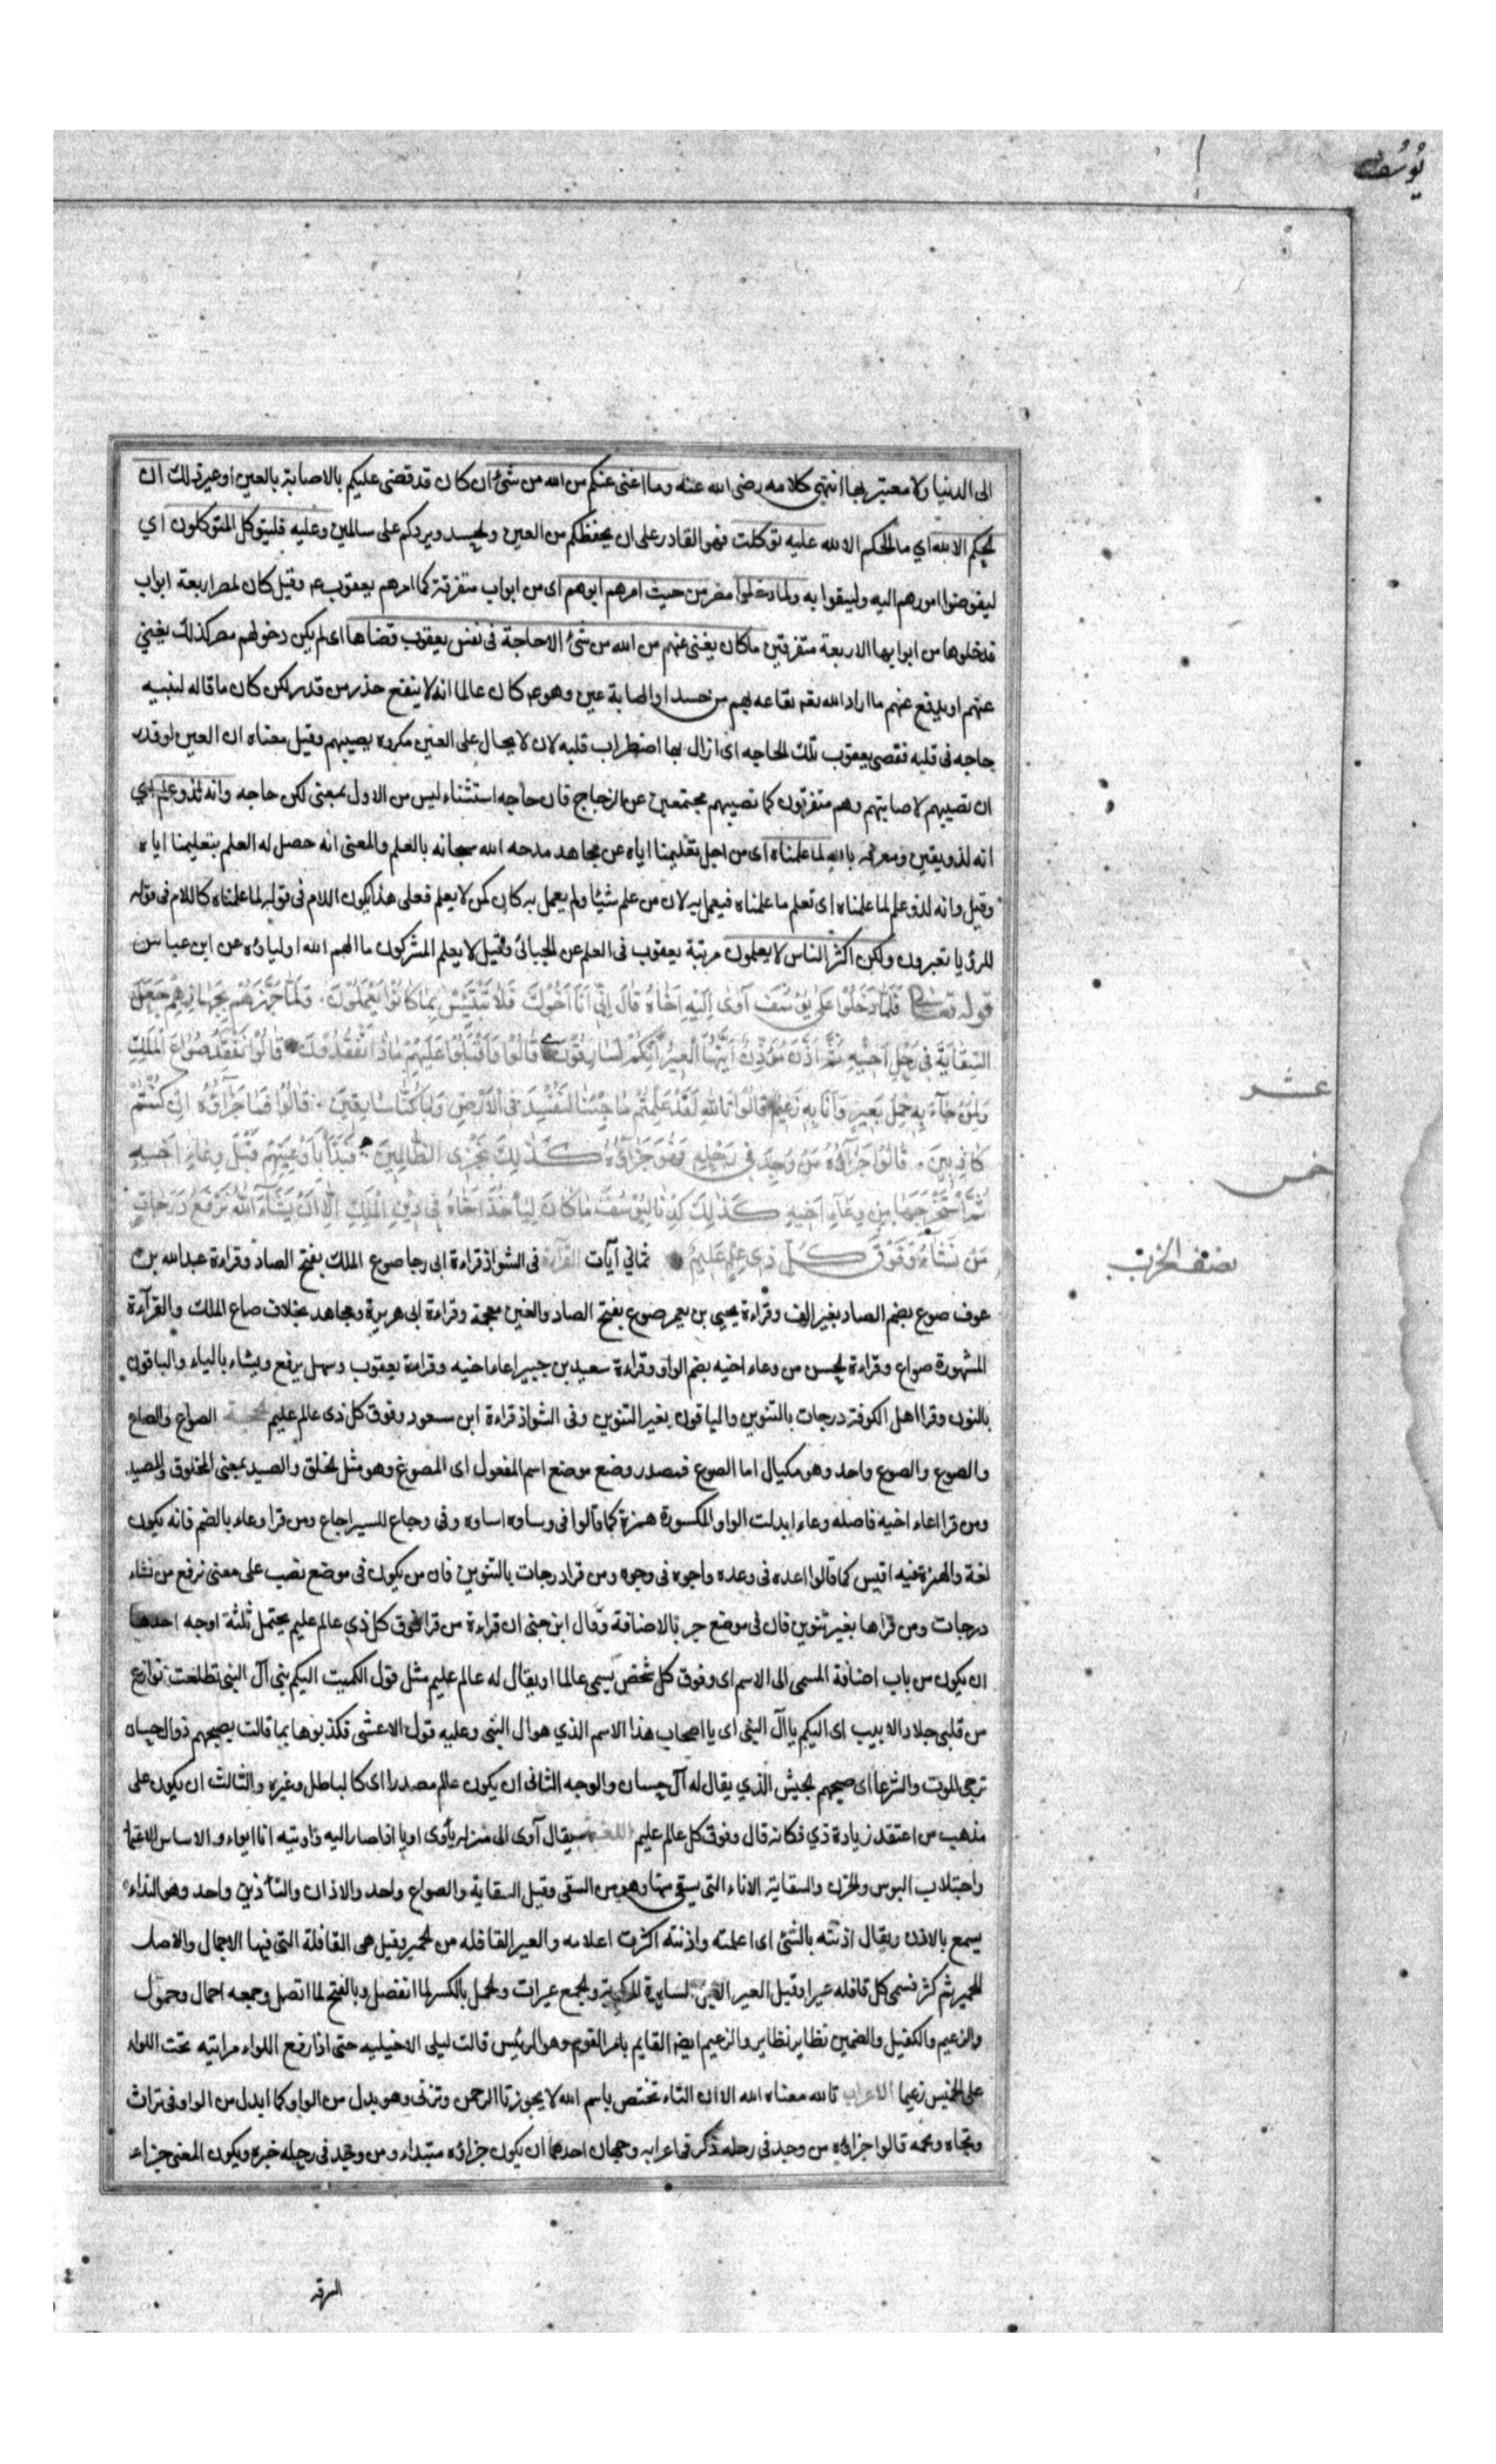 يُوسُف
الى الدنيا ولا معتبر بها انتهى كلامه رضى الله عنه وما اغنى عنكم من الله من شئ ان كان قد قضى عليكم بالاصابة بالعين او غير ذلك ان
الحكم الا لله اي ما الحكم الا لله عليه توكلت فهو القادر على ان يحفظكم من العين والحسد ويردكم على سالمين وعليه فليتوكل المتوكلون اي
ليفوضوا امورهم اليه وليبقوا به ولما دخلوا مصر من حيث امرهم ابوهم اى من ابواب متفرقة كما امرهم يعقوب ع وقيل كان لمصر اربعة ابواب
فدخلوها من ابوابها الاربعة متفرقين ما كان يغنى عنهم من الله من شئ الا حاجة فى نفس يعقوب قضاها اى لم يكن دخولهم مصر كذلك يغني
عنهم او يدفع عنهم ما اراد الله تعه بقاعه بهم من حسد او اصابة عين وهوع كان عالما انه لا ينفع حذر من قدر لكن كان ما قاله لبنيه
حاجه فى قلبه فقضى يعقوب تلك الحاجه اى ازال بها اضطراب قلبه لان لا يحال على العين مكروه يصيبهم وقيل معناه ان العين لو قدر
ان تصيبهم لاصابتهم وهم متفرقون كما تصيبهم مجتمعين عن الزجاج قال حاجه استثناء ليس من الاول بمعنى لكن حاجه وانه لذو علم اي
انه لذو يقين ومعرفه بالله لما علمناه اى من اجل تعليمنا اياه عن مجاهد مدحه الله سبحانه بالعلم والمعنى انه حصل له العلم بتعليمنا اياه
وقيل وانه لذو علم لما علمناه اى تعلم ما علمناه فيعمل به لان من علم شيئا ولم يعمل به كان كمن لا يعلم فعلى هذا يكون اللام فى قوله لما علمناه كاللام فى قوله
للرؤيا تعبرون ولكن اكثر الناس لا يعلمون مرتبة يعقوب فى العلم عن الجبائى وقيل لا يعلم المشركون ما الهم الله اولياؤه عن ابن عباس
قوله تعالى فَلَمَّا دَخَلُوا عَلى يُوسُفَ آوى اِلَيْهِ اَخَاهُ قَالَ اِنّى اَنَا اَخُوكَ فَلا تَبْتَئِسْ بِمَا كَانُوا يَعْمَلُونَ . فَلَمَّا جَهَّزَهُمْ بِجَهَازِهِمْ جَعَلَ
السِّقَايَةَ فى رَحْلِ اَخيهِ ثُمَّ اَذَّنَ مُؤَذِّنٌ اَيَّتُهَا الْعيرُ اِنَّكُمْ لَسَارِقُونَ قَالُوا وَاَقْبَلُوا عَلَيْهِمْ مَاذَا تَفْقِدُونَ قَالُوا نَفْقِدُ صُوَاعَ الْمَلِكِ
وَلِمَنْ جَاءَ بِهِ حِمْلُ بَعيرٍ وَاَنَا بِهِ زَعيمٌ قَالُوا تَاللهِ لَقَدْ عَلِمْتُمْ مَا جِئْنَا لِنُفْسِدَ فى الْاَرْضِ وَمَا كُنَّا سَارِقينَ . قَالُوا فَمَا جَزَاؤُهُ اِنْ كُنْتُمْ
كَاذِبينَ . قَالُوا جَزَاؤُهُ مَنْ وُجِدَ فى رَحْلِهِ فَهُوَ جَزَاؤُهُ كَذلِكَ نَجْزِى الظَّالِمينَ فَبَدَاَ بِاَوْعِيَتِهِمْ قَبْلَ وِعَاءِ اَخيهِ
ثُمَّ اسْتَخْرَجَهَا مِنْ وِعَاءِ اَخيهِ كَذلِكَ كِدْنَا لِيُوسُفَ مَا كَانَ لِيَاْخُذَ اَخَاهُ فى دينِ الْمَلِكِ اِلَّا اَنْ يَشَاءَ اللهُ نَرْفَعُ دَرَجَاتٍ
مَنْ نَشَاءُ وَفَوْقَ كُلِّ ذى عِلْمٍ عَليمٌ ثماني آيات القراءة فى الشواذ قراءة ابى رجا صوع الملك بفتح الصاد وقراءة عبدالله بن
عوف صوع بضم الصاد بغير الف وقراءة يحيى بن يعمر صوغ بفتح الصاد والغين معجمة وقراءة ابى هريرة ومجاهد بخلاف صاع الملك والقرآءة
المشهورة صواع وقراءة الحسن من وعاء اخيه بضم الواو وقراءة سعيد بن جبير اعاء اخيه وقراءة يعقوب وسهل يرفع ويشاء بالياء والباقون
بالنون وقرا اهل الكوفة درجات بالتنوين والباقون بغير التنوين وفى الشواذ قراءة ابن مسعود وفوق كل ذى عالم عليم الحجة الصواع والصاع
والصوع والصوع واحد وهو مكيال اما الصوغ فمصدر وضع موضع اسم المفعول اى المصوغ وهو مثل الخلق والصيد بمعنى المخلوق والمصيد
ومن قرا اعاء اخيه فاصله وعاء ابدلت الواو المكسورة همزة كما قالوا فى وساده اساده وفى وجاع للستر اجاع ومن قرا وعاء بالضم فانه يكون
لغة والهمزة فيه اقيس كما قالوا اعده فى وعده واجوه فى وجوه ومن قرا درجات بالتنوين فان من يكون فى موضع نصب على معنى نرفع من نشاء
درجات ومن قراها بغير تنوين فان فى موضع جر بالاضافة وقال ابن جنى ان قراءة من قرا فوق كل ذي عالم عليم يحتمل ثلثة اوجه احدها
ان يكون من باب اضافة المسمى الى الاسم اى وفوق كل شخص يسمى عالما او يقال له عالم عليم مثل قول الكميت اليكم بنى آل النبى تطلعت نوازع
من قلبى ظلاء والابيب اى اليكم يا آل النبى اى يا اصحاب هذا الاسم الذي هو ال النبى وعليه قول الاعشى فكذبوها بما قالت يصبحهم ذوال حسان
تزجى الموت والشرعا اى صبحهم الجيش الذي يقال له آل حسان والوجه الثانى ان يكون عالم مصدرا اى كالباطل وغيره والثالث ان يكون على
مذهب من اعتقد زيادة ذي فكانه قال وفوق كل عالم عليم اللغة يقال آوى الى منزله يأوى اويا اذا صار اليه واويته انا ايواء والابتئاس الاغتمام
واجتلاب البوس والحزن والسقاية الاناء التى يسقى منها وهو من السقى وقيل السقاية والصواع واحد والاذان والتأذين واحد وهو النداء
يسمع بالاذن ويقال اذنته بالشئ اى اعلمته واذنته اكثرت اعلامه والعير القافله من الحمير وقيل هى القافلة التى فيها الاجمال والاصل
للحمير ثم كثر فسمى كل قافله عيرا وقيل العير السايرة والجمع عيرات والحمل بالكسر لما انفصل وبالفتح لما اتصل وجمعه احمال وحمول
والزعيم والكفيل والضمين نظاير نظاير والزعيم ايضا القايم بامر القوم وهو الرئيس قالت ليلى الاخيليه حتى اذا رفع اللواء مرايته تحت اللواء
على الخميس زعيما الاعراب تالله معناه الله الا ان التاء تختص باسم الله لا يجوز تا الرحمن وتربى وهو بدل من الواو كما ابدل من الواو فى تراث
وتجاه وتخمه قالوا جزاؤه من وجد فى رحله ذكر فى اعرابه وجهان احدهما ان يكون جزاؤه مبتداء ومن وجد فى رحله خبره ويكون المعنى جزاء
عشر
خمس
نصف الحزب
السرقه